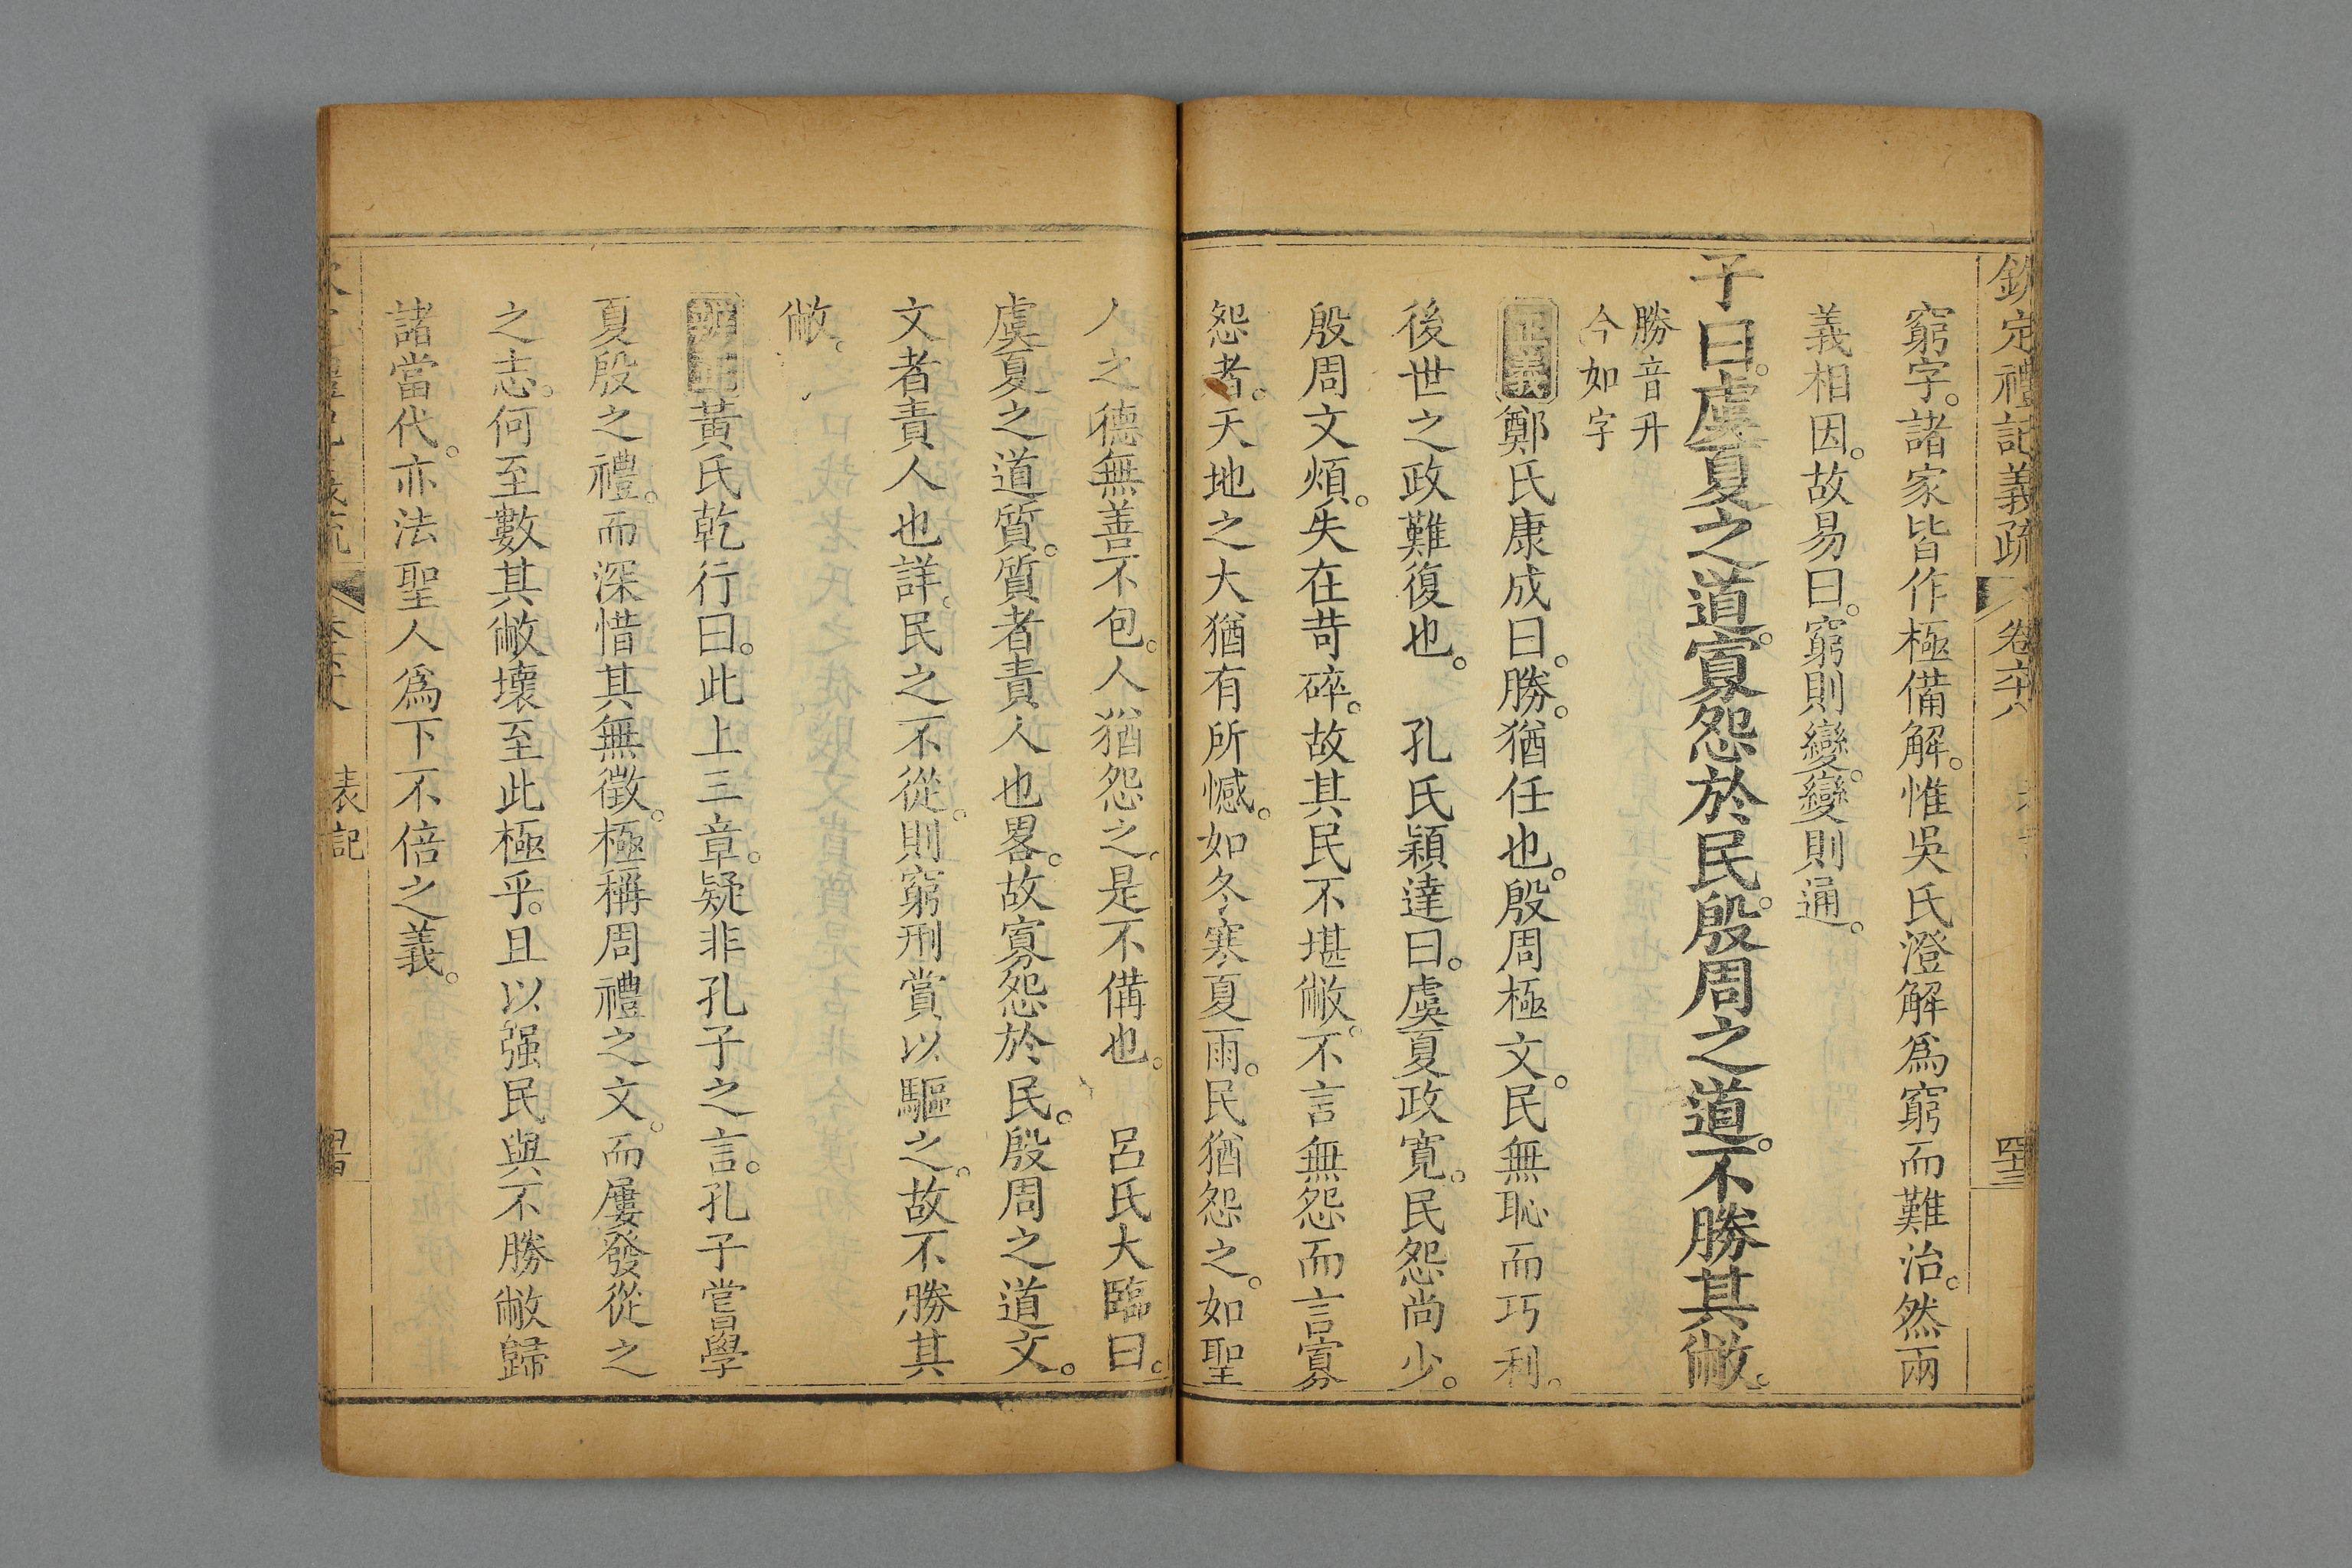 欽定禮記義疏 卷六十八
窮字。諸家皆作極備解。惟吳氏澄解爲窮而難治。然兩
義相因。故易曰。窮則變。變則通。
子曰。虞夏之道。寡怨於民。殷周之道。不勝其敝。
勝音升
今如字
正義鄭氏康成曰。勝。猶任也。殷周極文。民無恥而巧利。
後世之政難復也。 孔氏穎達曰。虞夏政寛。民怨尚少。
殷周文煩。失在苛碎。故其民不堪敝。不言無怨而言寡
怨者。天地之大猶有所憾。如冬寒夏雨。民猶怨之。如聖
人之德無善不包。人猶怨之。是不備也。 呂氏大臨曰。
虞夏之道質。質者責人也畧。故寡怨於民。殷周之道文。
文者責人也詳。民之不從。則窮刑賞以驅之。故不勝其
敝。
黃氏乾行曰。此上三章。疑非孔子之言。孔子嘗學
夏殷之禮。而深惜其無徵。極稱周禮之文。而屢發從之
之志。何至數其敝壞至此極乎。且以强民與不勝敝歸
諸當代。亦法聖人爲下不倍之義。
表記